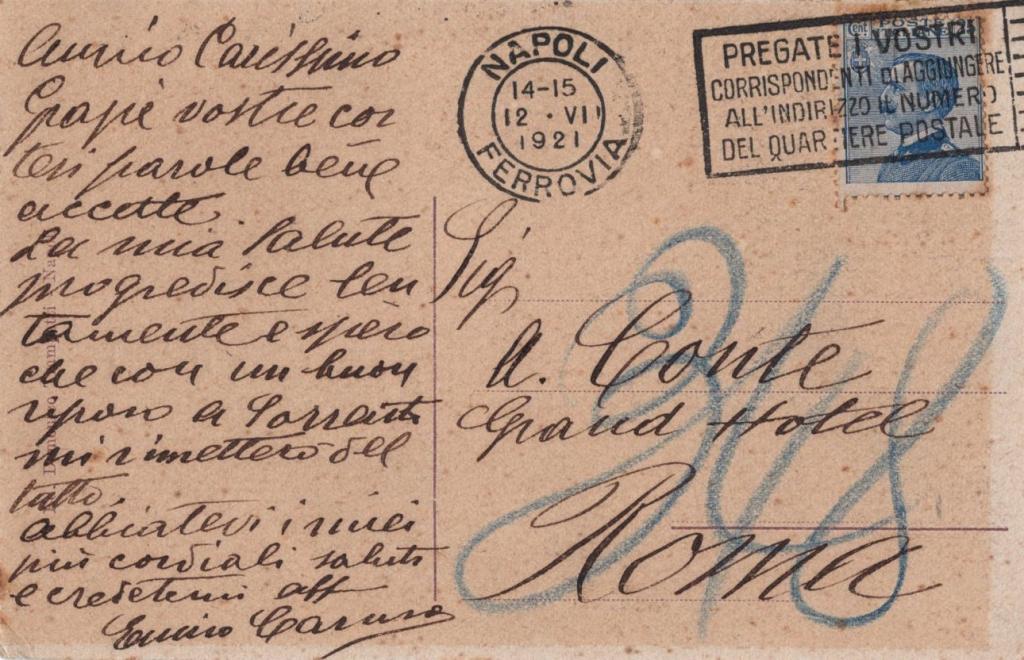 Amico Carissimo
Grazie vostre cor
tesi parole bene
accette.
La mia salute
progredisce len
tamente e spero
che con un buon
riposo a Sorrento
mi rimetterò del
tutto.
Abbiatevi i miei
più cordiali saluti
e credetemi aff
Enrico Caruso
NAPOLI
14-15
12 · VI
1921
FERROVIA
POSTE
PREGATE I VOSTRI
CORRISPONDENTI DI AGGIUNGERE
ALL'INDIRIZZO IL NUMERO
DEL QUARTIERE POSTALE
Sig
A. Conte
Grand Hotel
Roma